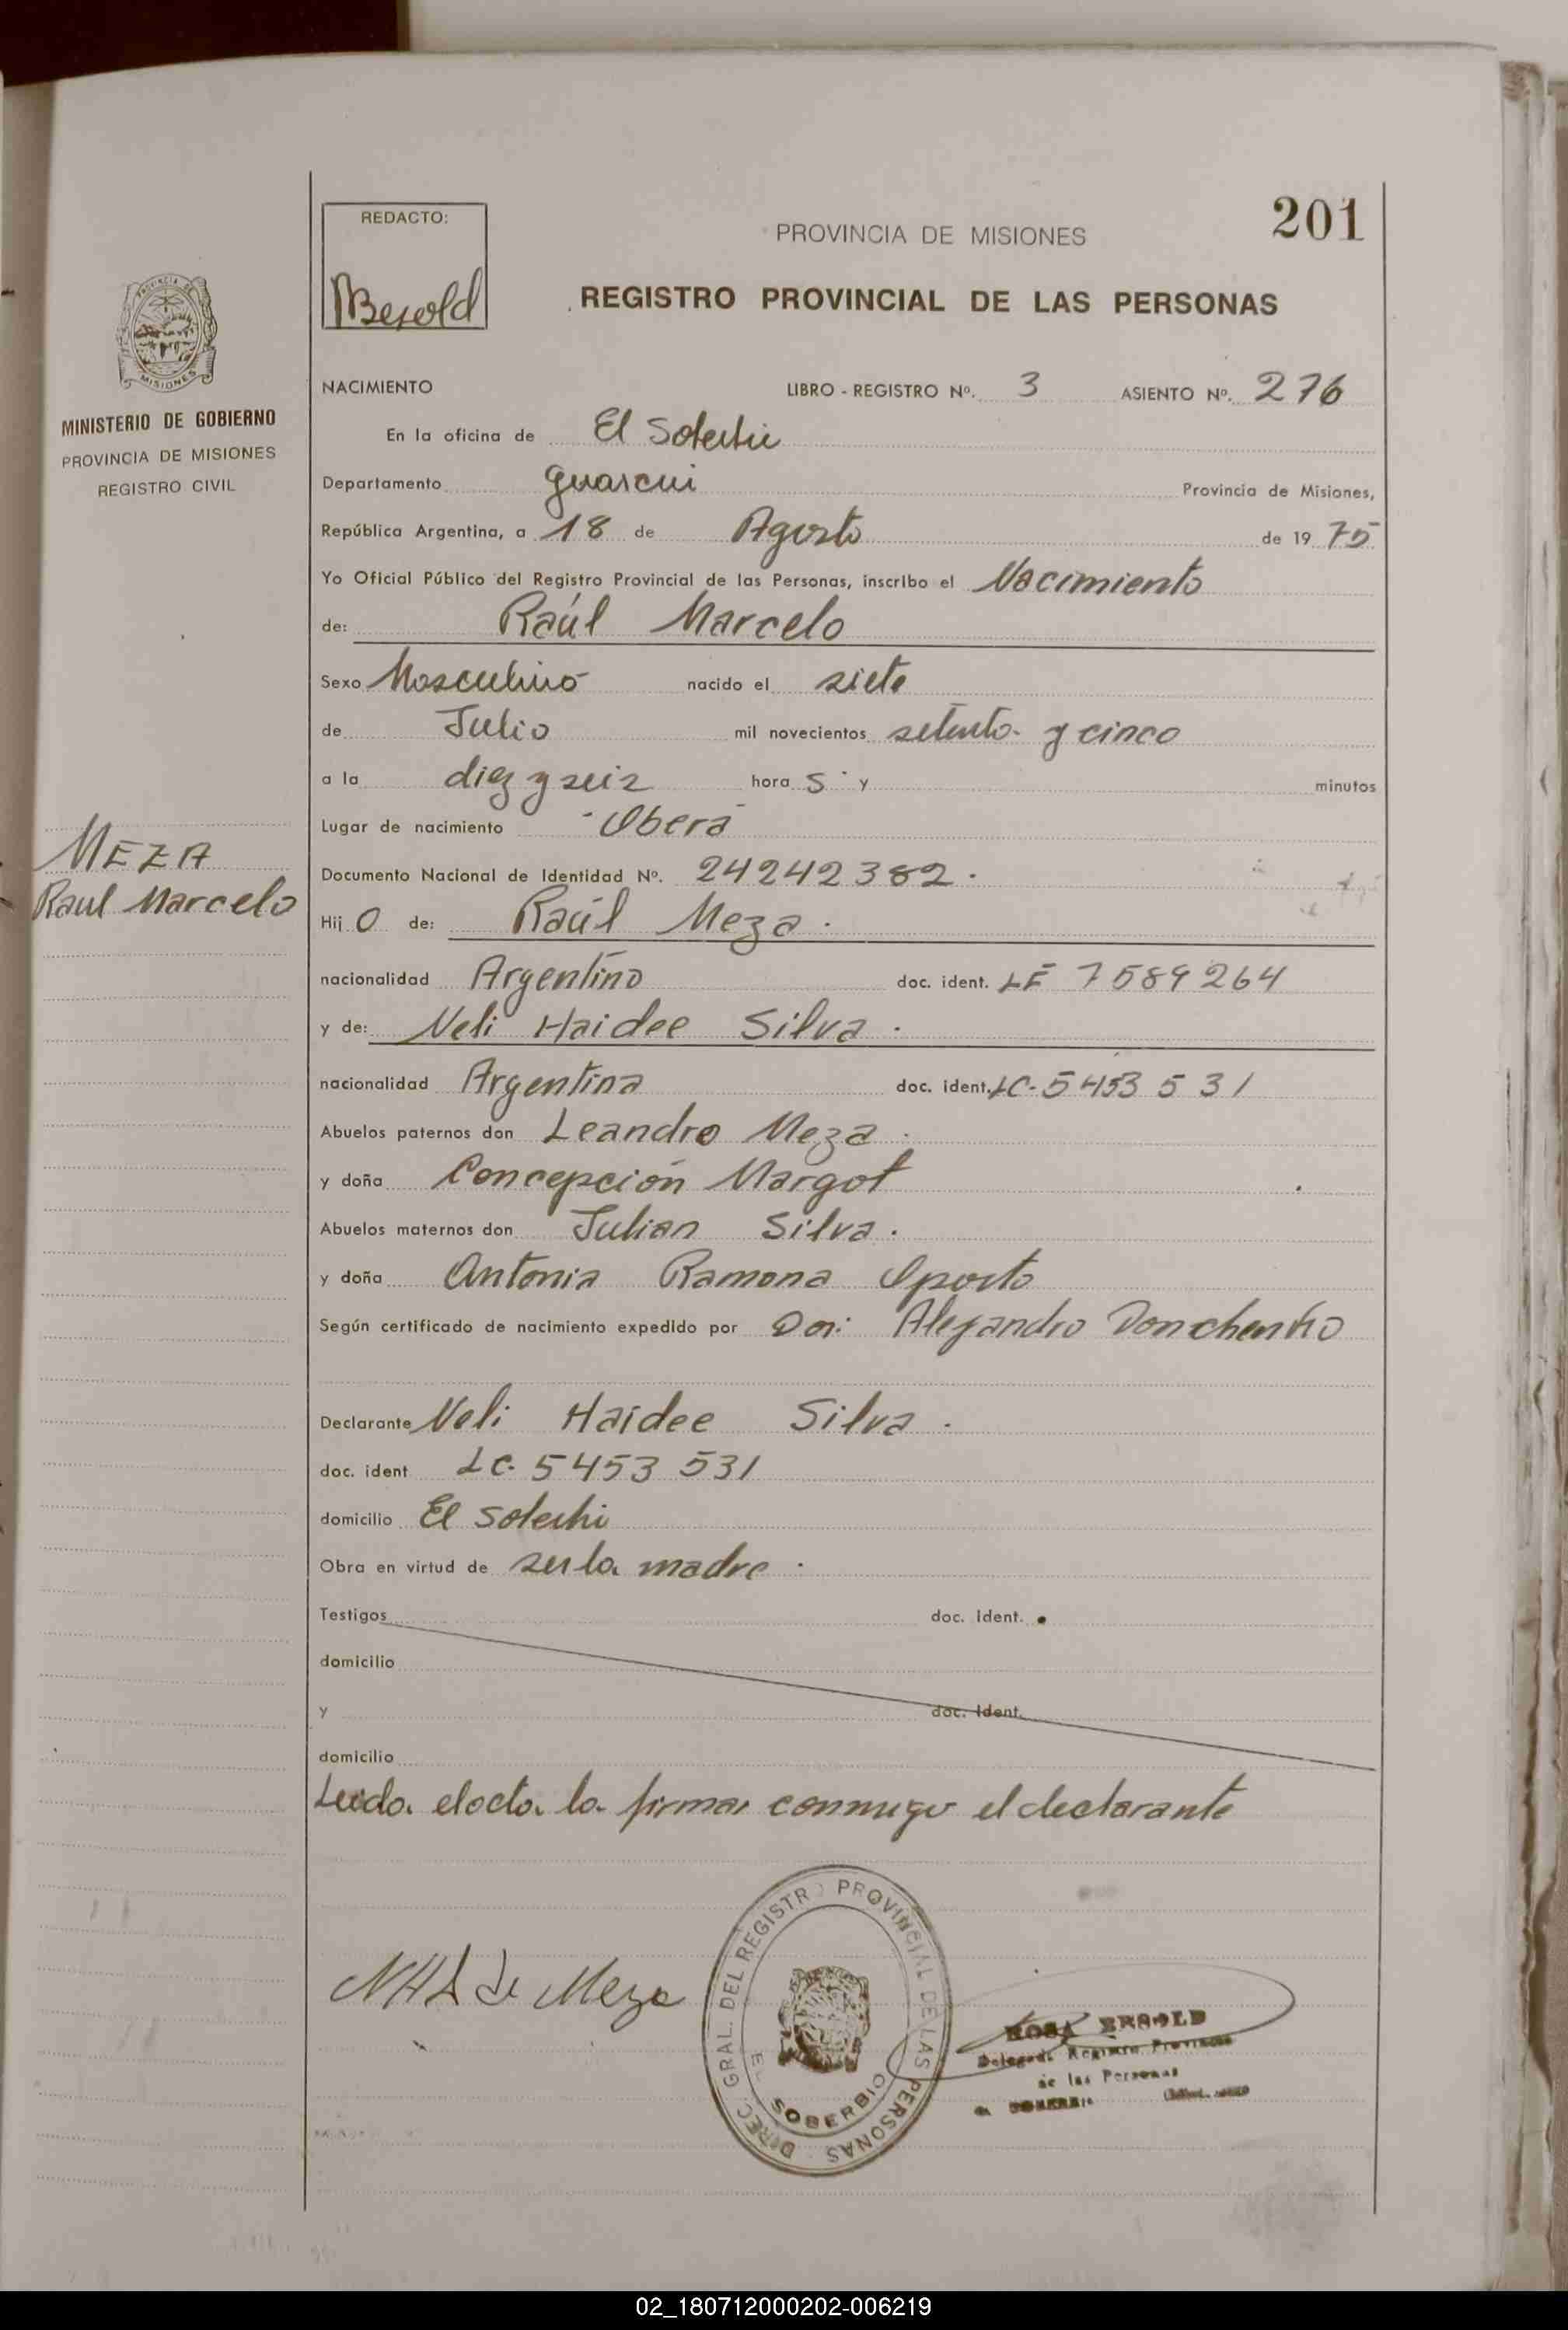 201
REDACTO:
Besold
PROVINCIA DE MISIONES
REGISTRO PROVINCIAL DE LAS PERSONAS
PROVINCIA DE
MISIONES
MINISTERIO DE GOBIERNO
PROVINCIA DE MISIONES
REGISTRO CIVIL
NACIMIENTO LIBRO - REGISTRO Nº. 3 ASIENTO Nº. 276
En la oficina de El Soberbio
Departamento Guaraní Provincia de Misiones,
República Argentina, a 18 de Agosto de 19 75
Yo Oficial Público del Registro Provincial de las Personas, inscribo el Nacimiento
de: Raúl Marcelo
Sexo Masculino nacido el siete
de Julio mil novecientos setenta y cinco
a la diez y seis hora s y minutos
Lugar de nacimiento Oberá
MEZA
Raul Marcelo
Documento Nacional de Identidad Nº. 24242382.
Hij o de: Raúl Meza.
nacionalidad Argentino doc. ident. LE 7589264
y de: Neli Haidee Silva.
nacionalidad Argentina doc. ident. LC-5453531
Abuelos paternos don Leandro Meza.
y doña Concepción Margot
Abuelos maternos don Julian Silva.
y doña Antonia Ramona Oporto
Según certificado de nacimiento expedido por Don: Alejandro Donchenko
Declarante Neli Haidee Silva.
doc. ident LC. 5453531
domicilio El Soberbio
Obra en virtud de ser la madre.
Testigos doc. ident.
domicilio
y doc. ident.
domicilio
Leida el acta la firma conmigo el declarante
NHS de Meza
DIREC. GRAL. DEL REGISTRO PROVINCIAL DE LAS PERSONAS
EL SOBERBIO
ROSA BESOLD
Delegada Registro Provincial
de las Personas
02_180712000202-006219